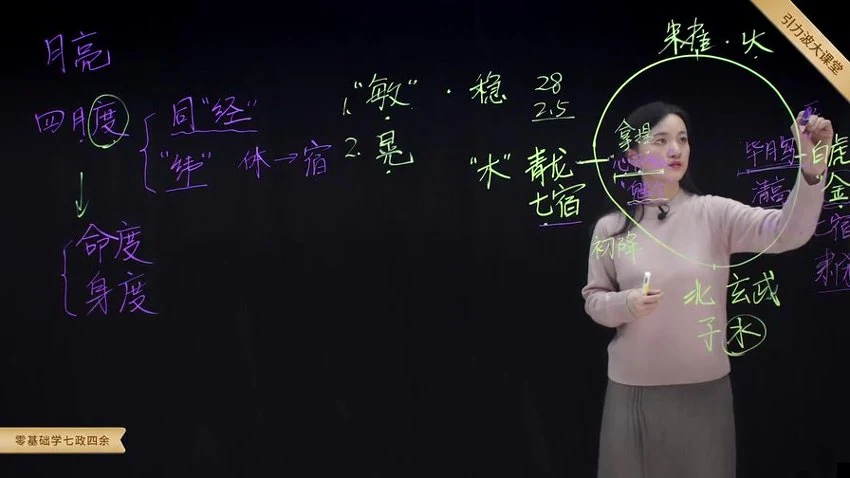 引力波大课堂
月亮
四月度
同"经"
"纬" 体→宿
命度
身度
1."敏"·稳
2.晃
28
2.5
朱雀·火
"木"青龙
七宿
初降
毕月
白虎
"金
宿
北 玄武
子 水
零基础学七政四余